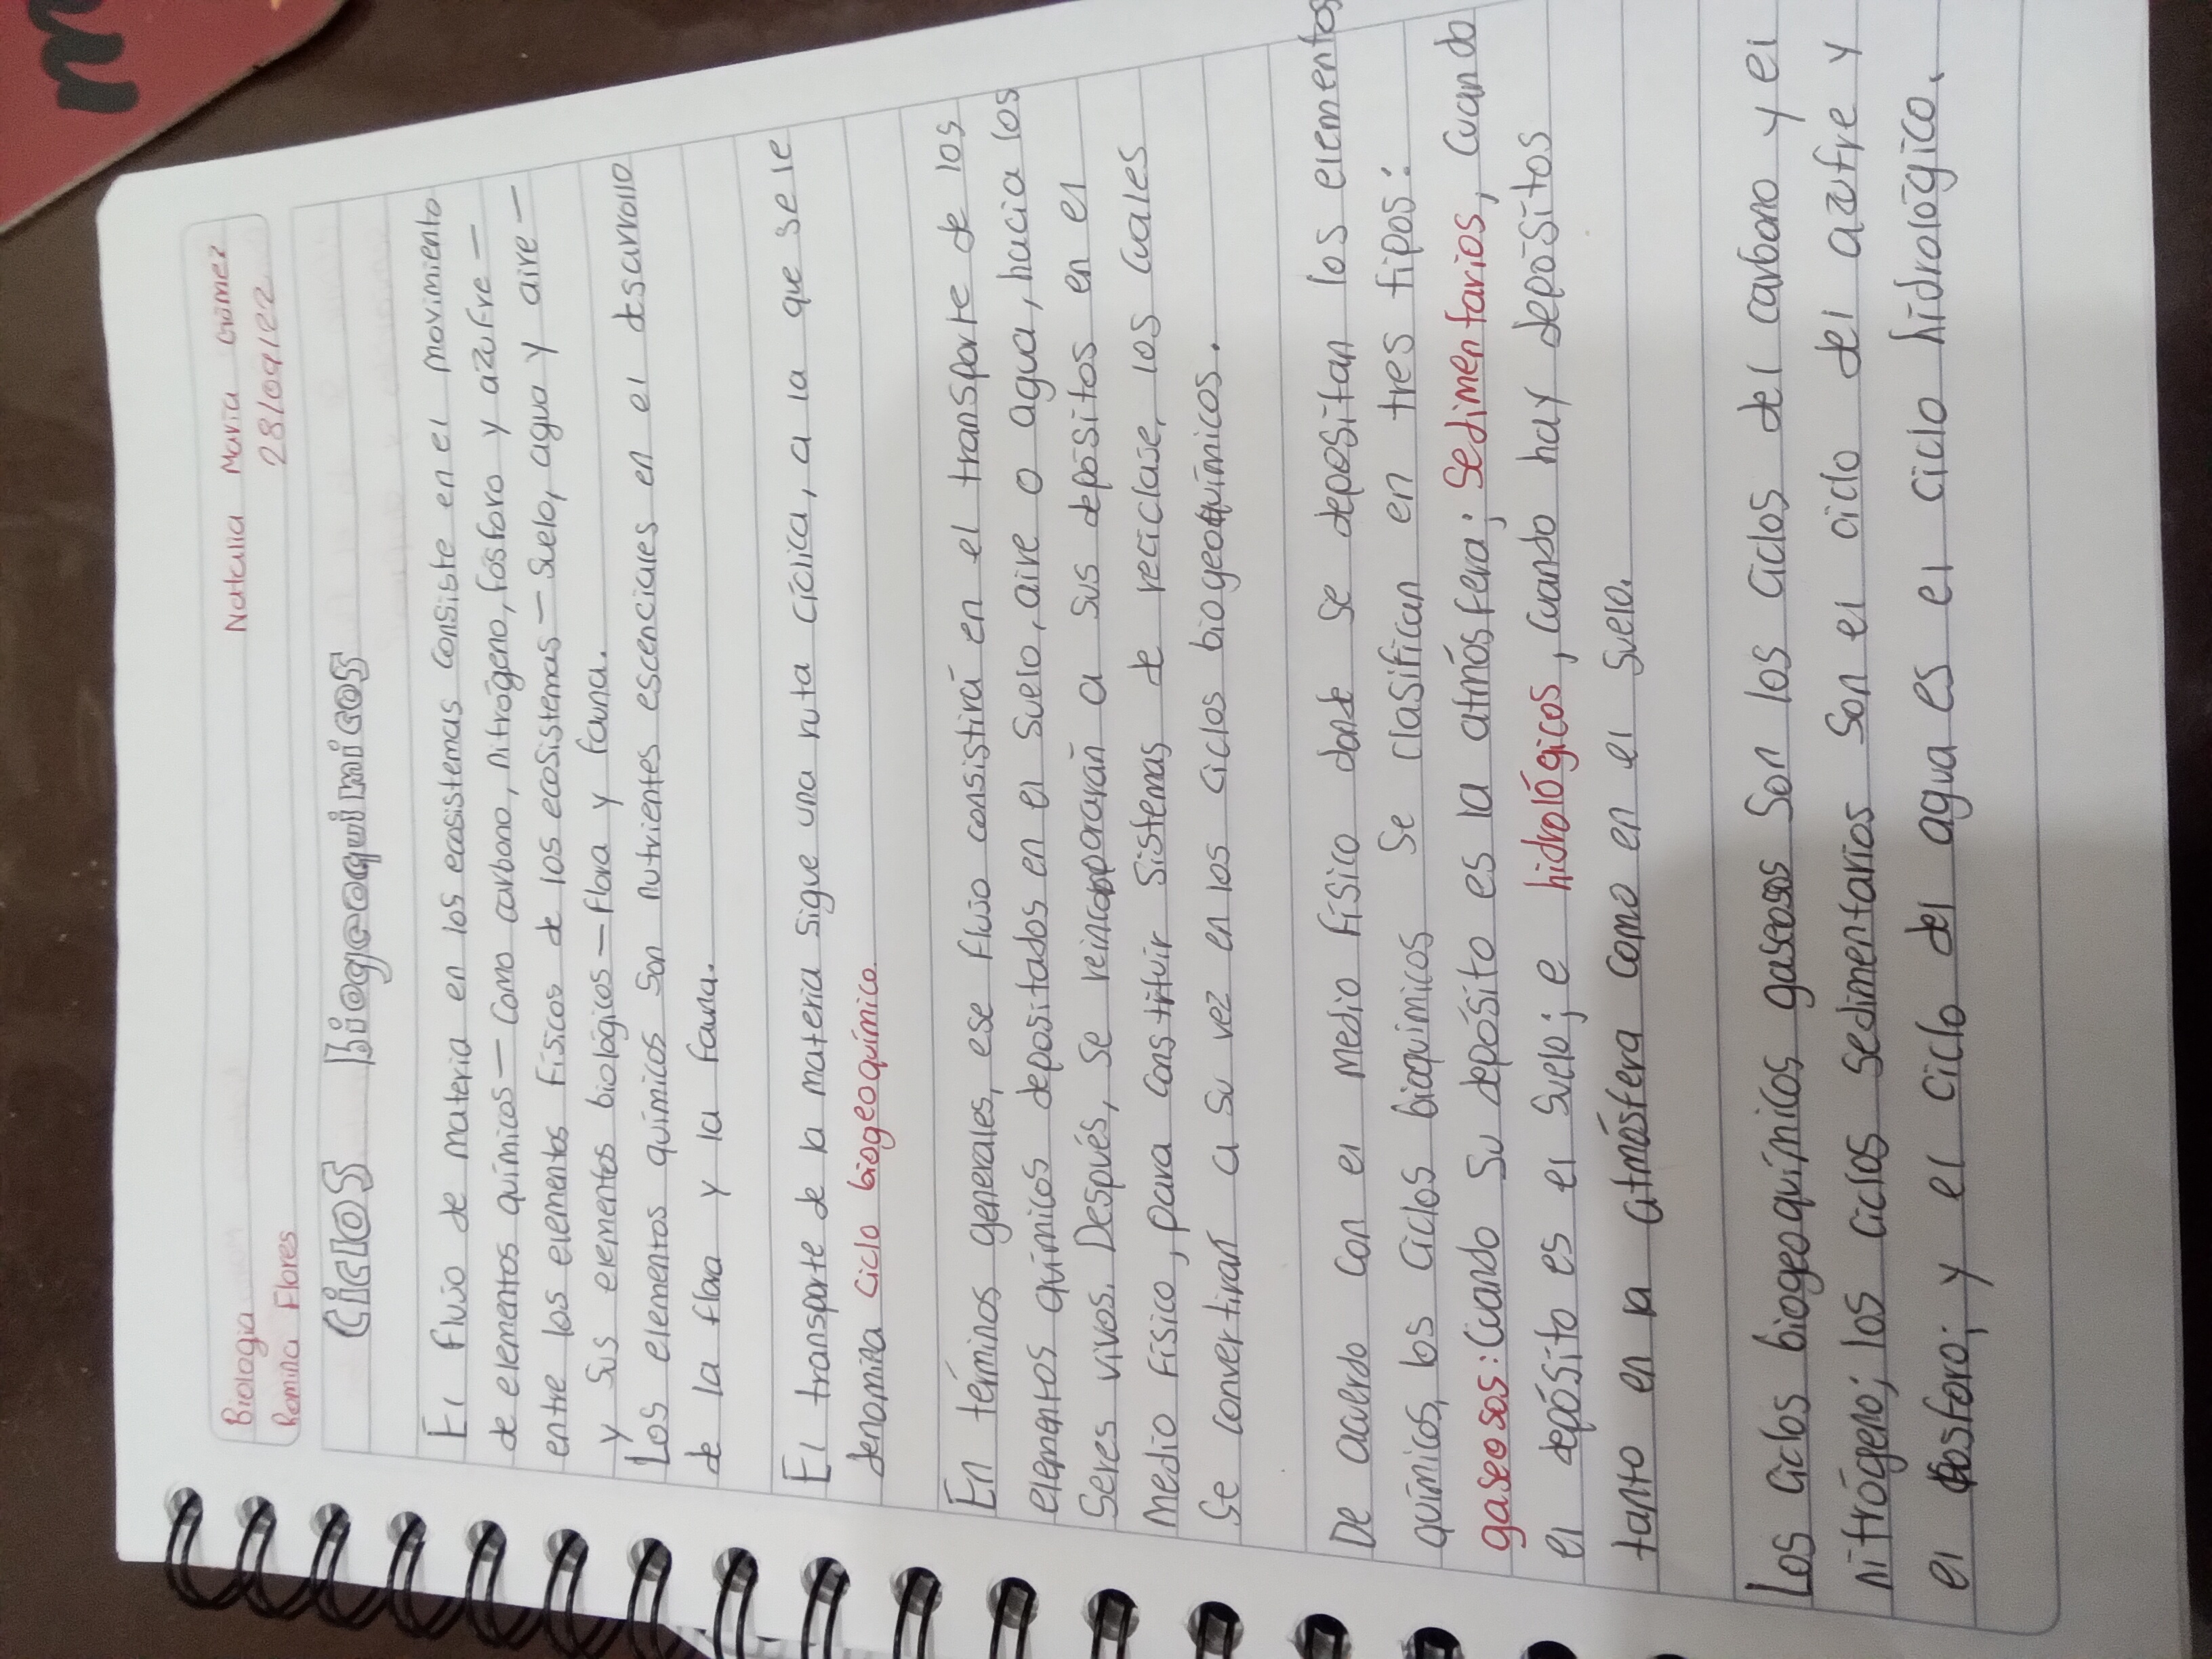 Biologia Natalia María Gómez
Romina Flores 28/09/22
Ciclos biogeoquimicos
El flujo de materia en los ecosistemas consiste en el movimiento
de elementos químicos — como carbono, nitrógeno, fósforo y azufre —
entre los elementos físicos de los ecosistemas — suelo, agua y aire —
y sus elementos biológicos — flora y fauna.
Los elementos químicos son nutrientes escenciales en el desarrollo
de la flora y la fauna.
El transporte de la materia sigue una ruta cíclica, a la que se le
denomina ciclo biogeoquímico.
En términos generales, ese flujo consistirá en el transporte de los
elementos químicos depositados en el suelo, aire o agua, hacia los
seres vivos. Después, se reincorporarán a sus depósitos en el
medio físico, para constituir sistemas de reciclase, los cuales
se convertirán a su vez en los ciclos biogeoquímicos.
De acuerdo con el medio físico donde se depositan los elementos
químicos, los ciclos bioquimicos se clasifican en tres tipos:
gaseosos: Cuando su depósito es la atmósfera; Sedimentarios, cuando
el depósito es el suelo; e hidrológicos, cuando hay depósitos
tanto en la atmósfera como en el suelo.
Los ciclos biogeoquímicos gaseosos son los ciclos del carbono y el
nitrógeno; los ciclos sedimentarios son el ciclo del azufre y
el fosforo; y el ciclo del agua es el ciclo hidrológico.